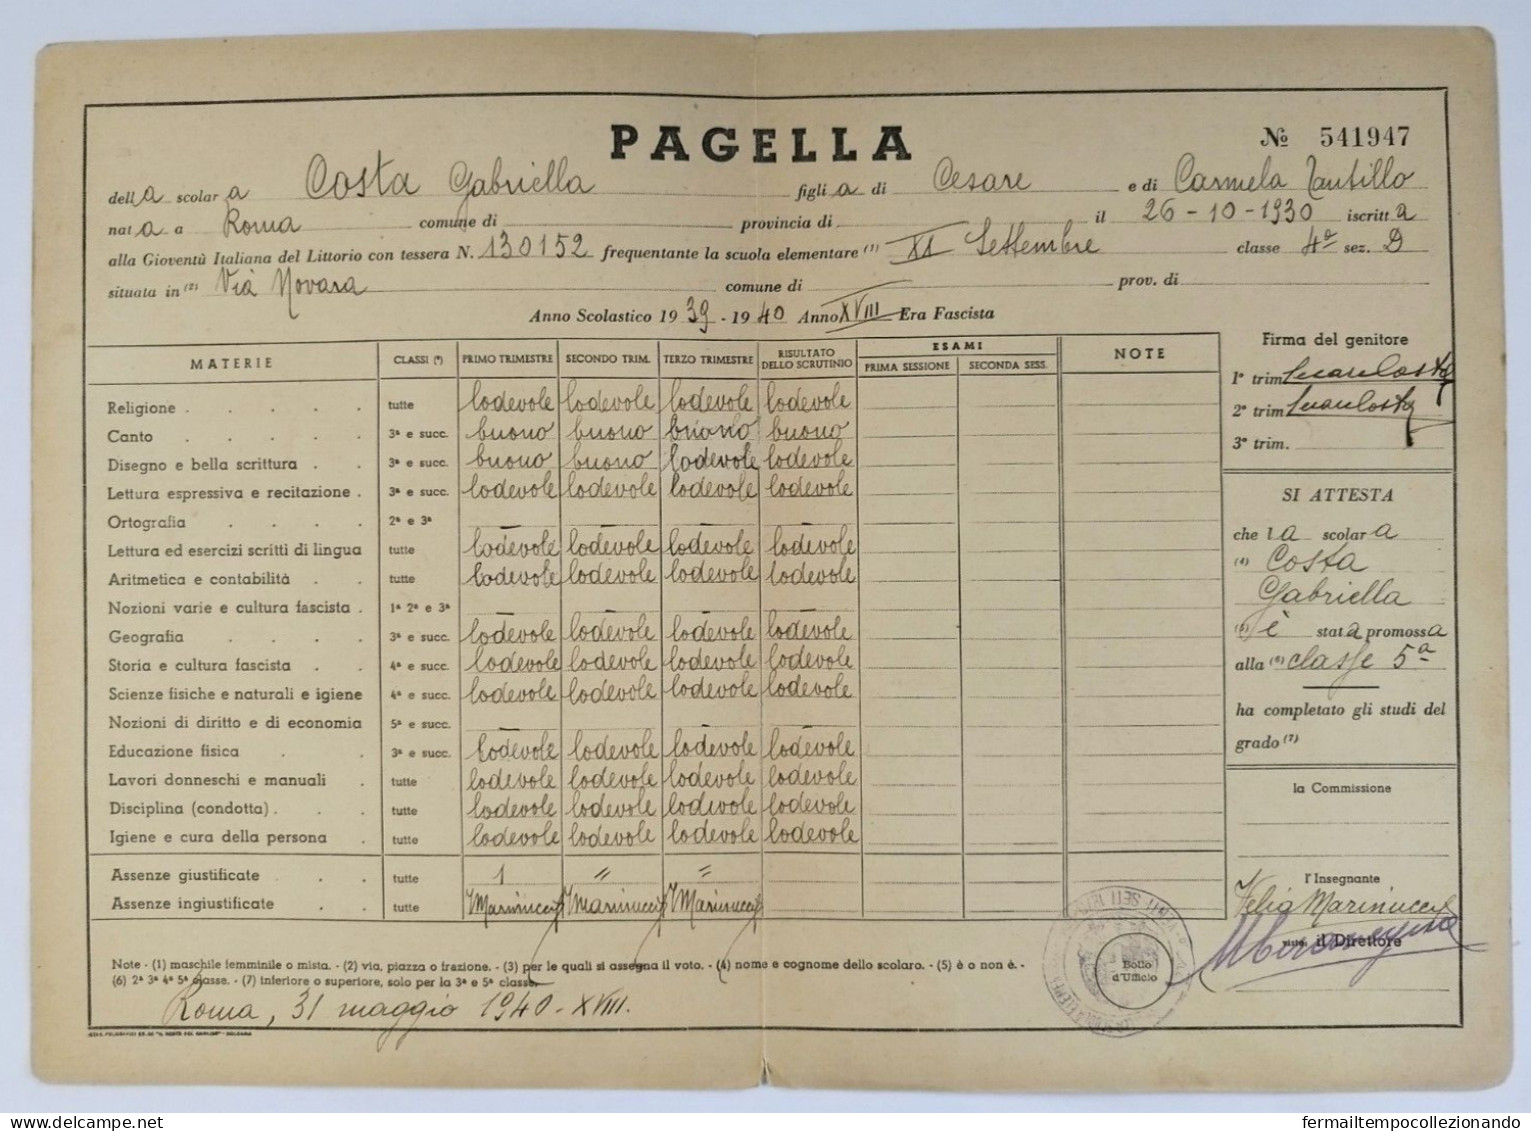 PAGELLA
№ 541947
della scolara Costa Gabriella figlia di Cesare e di Carmela Tantillo
nata a Roma comune di provincia di il 26-10-1930 iscritta
alla Gioventù Italiana del Littorio con tessera N. 130152 frequentante la scuola elementare (1) XI Settembre classe 4ª sez. D
situata in (2) Via Novara comune di prov. di
Anno Scolastico 1939-1940 Anno XVIII Era Fascista
MATERIE CLASSI (*) PRIMO TRIMESTRE SECONDO TRIM. TERZO TRIMESTRE RISULTATO DELLO SCRUTINIO ESAMI PRIMA SESSIONE SECONDA SESS. NOTE
Religione tutte lodevole lodevole lodevole lodevole
Canto 3ª e succ. buono buono buono buono
Disegno e bella scrittura 3ª e succ. buono buono lodevole lodevole
Lettura espressiva e recitazione 3ª e succ. lodevole lodevole lodevole lodevole
Ortografia 2ª e 3ª — — — —
Lettura ed esercizi scritti di lingua tutte lodevole lodevole lodevole lodevole
Aritmetica e contabilità tutte lodevole lodevole lodevole lodevole
Nozioni varie e cultura fascista 1ª 2ª e 3ª — — — —
Geografia 3ª e succ. lodevole lodevole lodevole lodevole
Storia e cultura fascista 4ª e succ. lodevole lodevole lodevole lodevole
Scienze fisiche e naturali e igiene 4ª e succ. lodevole lodevole lodevole lodevole
Nozioni di diritto e di economia 5ª e succ. — — — —
Educazione fisica 3ª e succ. lodevole lodevole lodevole lodevole
Lavori donneschi e manuali tutte lodevole lodevole lodevole lodevole
Disciplina (condotta) tutte lodevole lodevole lodevole lodevole
Igiene e cura della persona tutte lodevole lodevole lodevole lodevole
Assenze giustificate tutte 1 " =
Assenze ingiustificate tutte Marinucci Marinucci Marinucci
Note - (1) maschile femminile o mista. - (2) via, piazza o frazione. - (3) per le quali si assegna il voto. - (4) nome e cognome dello scolaro. - (5) è o non è. -
(6) 2ª 3ª 4ª 5ª classe. - (7) inferiore o superiore, solo per la 3ª e 5ª classe.
Roma, 31 maggio 1940-XVIII.
Bollo
d'Ufficio
Firma del genitore
1º trim.
2º trim.
3º trim.
SI ATTESTA
che la scolara
(4) Costa
Gabriella
(5) è stata promossa
alla (6) classe 5ª
ha completato gli studi del
grado (7)
la Commissione
l'Insegnante
Velia Marinucci
visto, il Direttore
fermailtempocollezionando.delcampe.net
fermailtempocollezionando